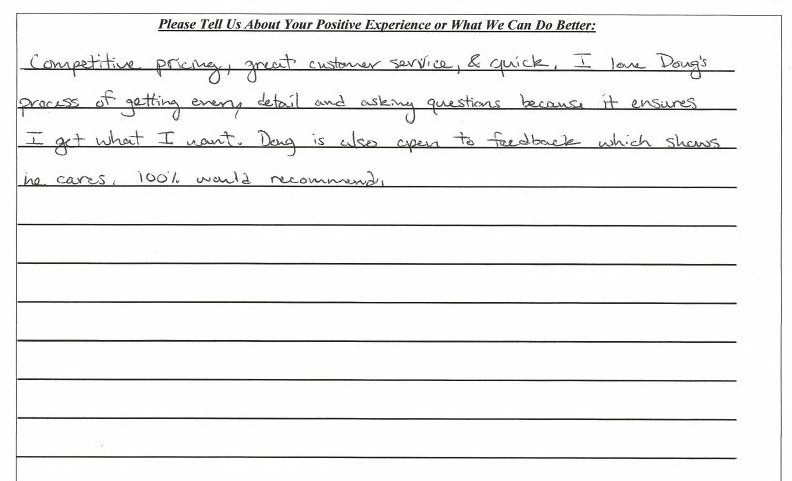 Please Tell Us About Your Positive Experience or What We Can Do Better:
Competitive pricing, great customer service, & quick. I love Doug's
process of getting every detail and asking questions because it ensures
I get what I want. Doug is also open to feedback which shows
he cares. 100% would recommend.